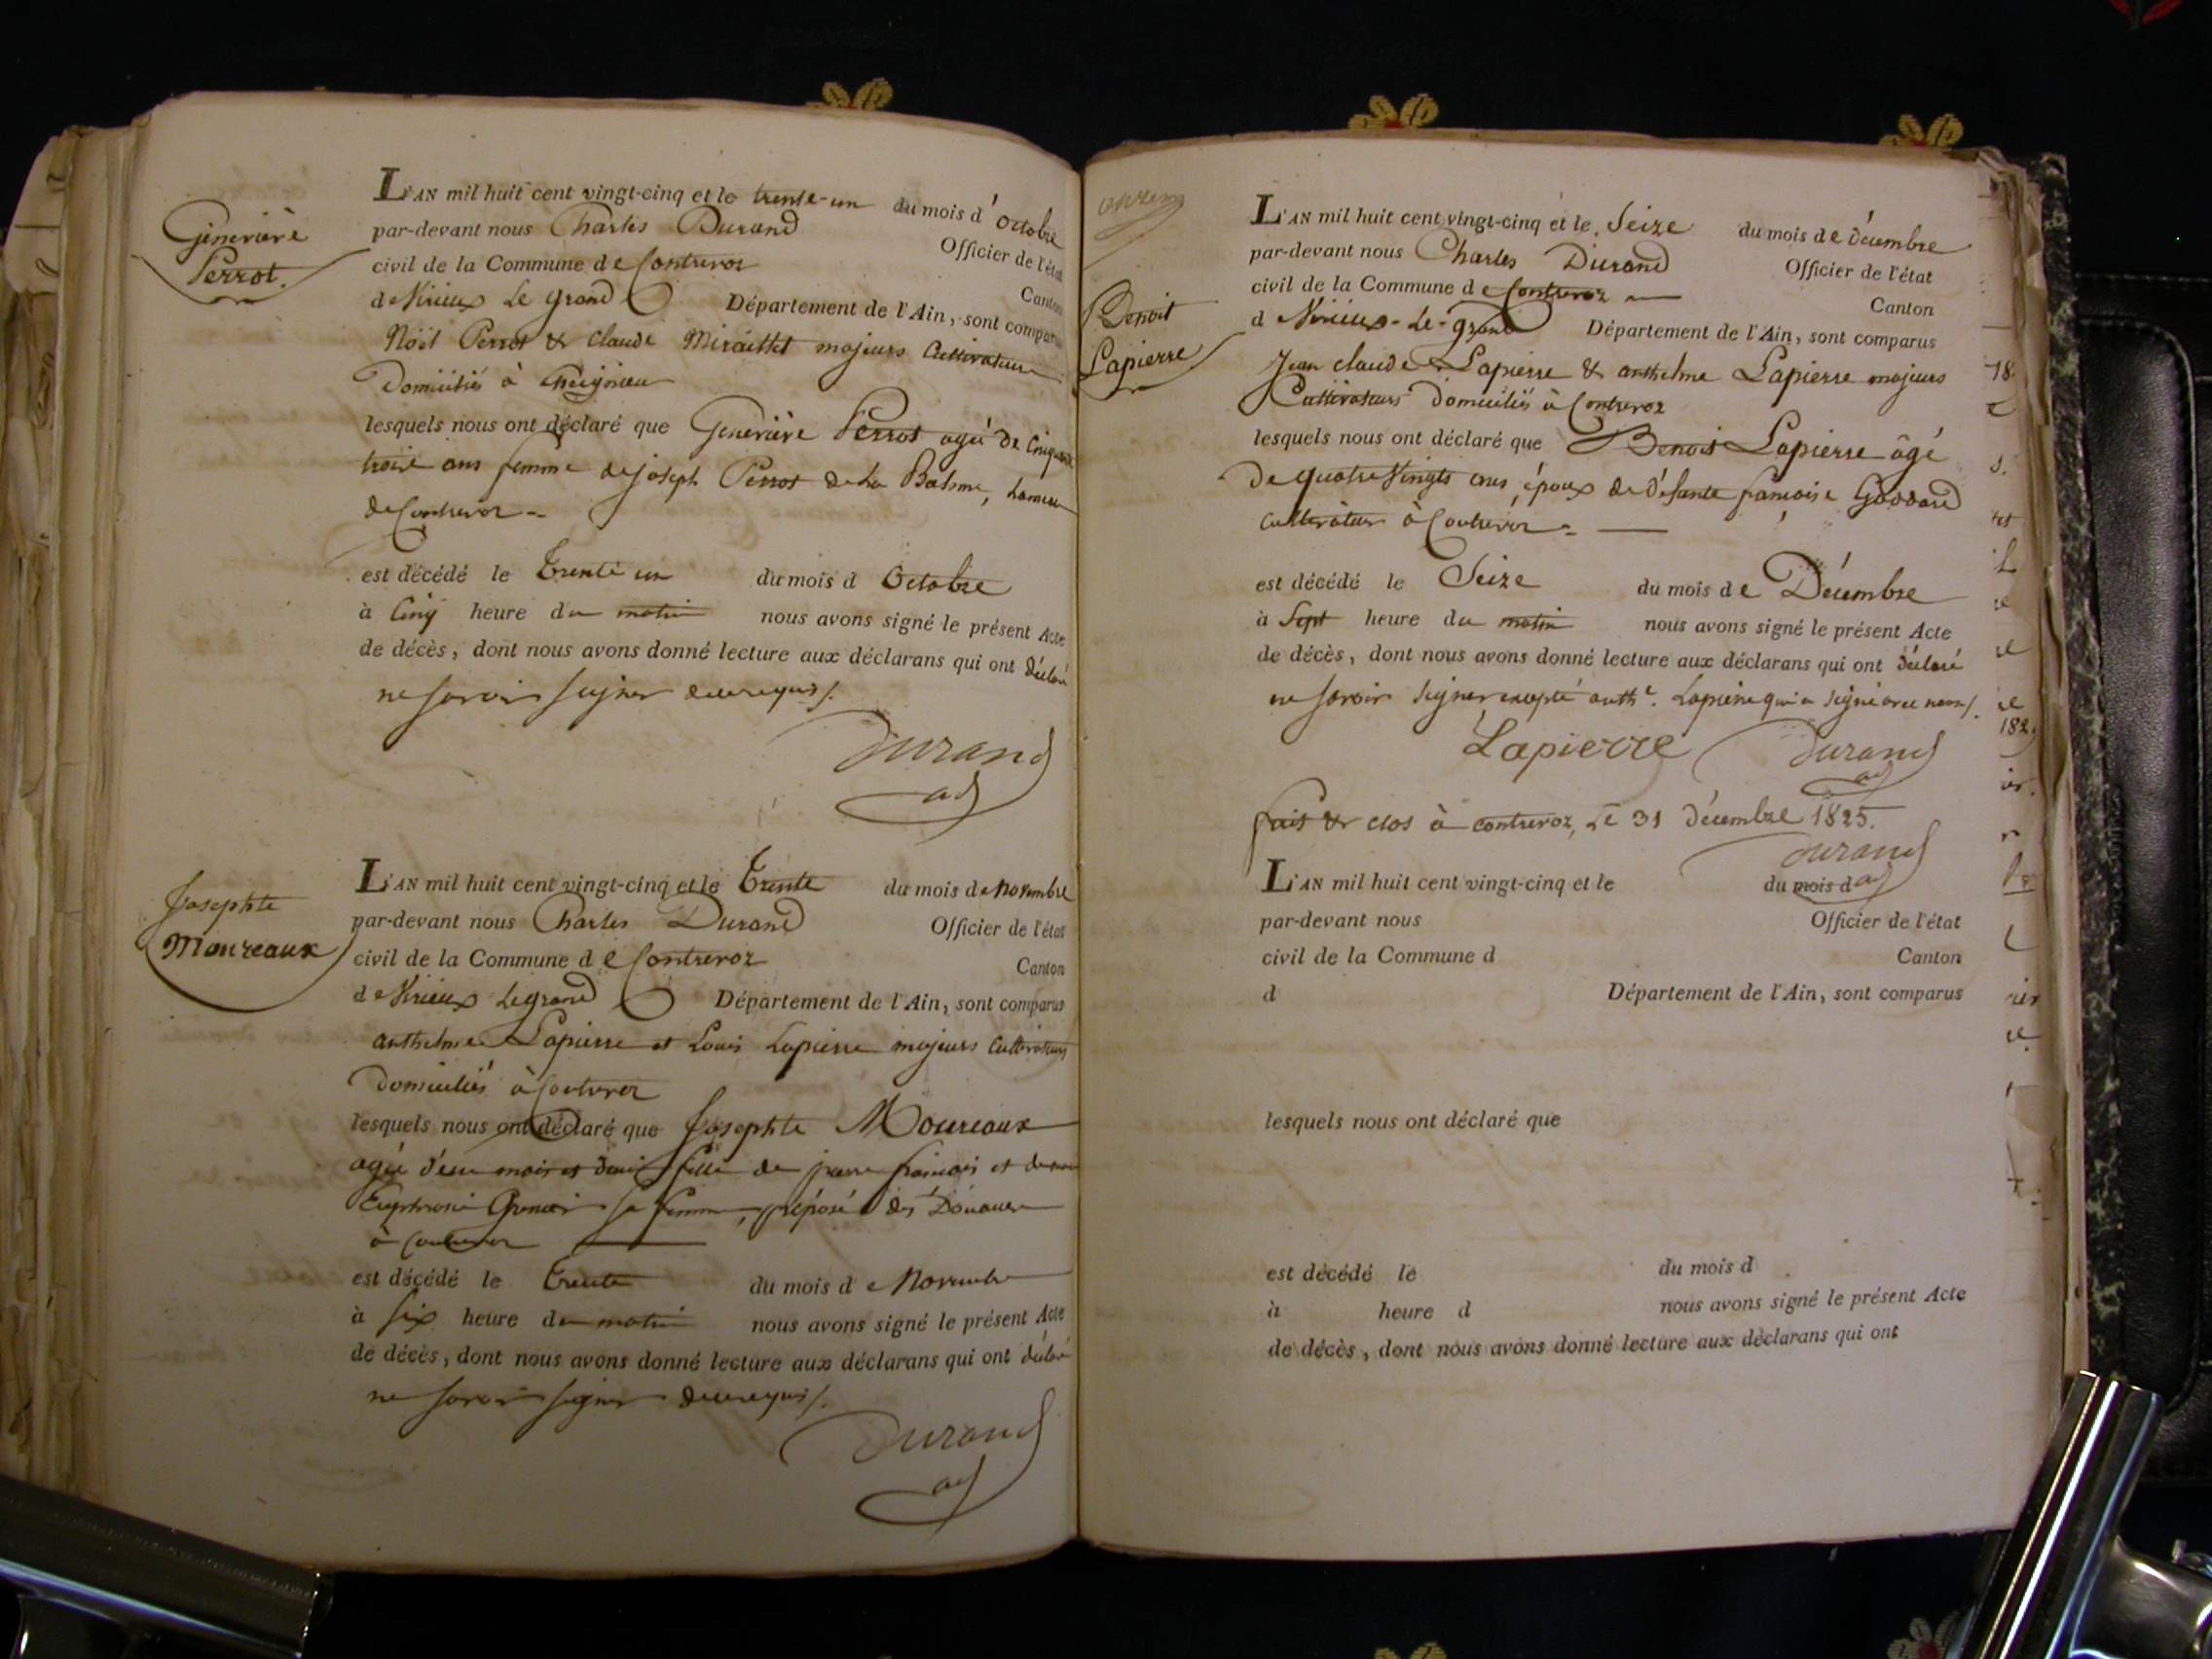 Genevieve
Perrot.
L'AN mil huit cent vingt-cinq et le trente-un du mois d'octobre
par-devant nous Charles Durand Officier de l'état
civil de la Commune de Contrevoz Canton
de Virieux Le grand Département de l'Ain, sont comparus
Noël Perrot & Claude majeurs Cultivateurs
Domiciliés à Cheignieu
lesquels nous ont déclaré que Genevieve Perrot agée de Cinquante
trois ans femme de joseph Perrot de La Balme, hameau
de Contrevoz
est décédé le trente un du mois d Octobre
à Cinq heure du matin nous avons signé le présent Acte
de décès, dont nous avons donné lecture aux déclarans qui ont déclaré
ne savoir signer de ce requis/.
Durand
adj
Josephte
Moureaux
L'AN mil huit cent vingt-cinq et le Trente du mois de Novembre
par-devant nous Charles Durand Officier de l'état
civil de la Commune de Contrevoz Canton
de Virieux Legrand Département de l'Ain, sont comparus
anthelme Lapierre et Louis Lapierre majeurs Cultivateurs
Domiciliés à Contrevoz
lesquels nous ont déclaré que Josephte Moureaux
agée d'un mois et demi fille de francois et de
sa femme, préposé des Douanes
à Contrevoz
est décédé le trente du mois de Novembre
à six heure du matin nous avons signé le présent Acte
de décès, dont nous avons donné lecture aux déclarans qui ont déclaré
ne savoir signer de ce requis/.
Durand
adj
Benoit
Lapierre
L'AN mil huit cent vingt-cinq et le Seize du mois de Décembre
par-devant nous Charles Durand Officier de l'état
civil de la Commune de Contrevoz Canton
d Virieux-Le-grand Département de l'Ain, sont comparus
Jean claude Lapierre & anthelme Lapierre majeurs
Cultivateurs Domiciliés à Contrevoz
lesquels nous ont déclaré que Benoit Lapierre âgé
de quatre Vingts ans, époux de défunte francoise Goddard
cultivateur à Contrevoz
est décédé le Seize du mois de Décembre
à Sept heure du matin nous avons signé le présent Acte
de décès, dont nous avons donné lecture aux déclarans qui ont déclaré
ne savoir signer excepté anthe. Lapierre qui a signé avec nous/.
Lapierre Durand
adj
fait & clos à contrevoz, Le 31 Décembre 1825.
Durand
adj
L'AN mil huit cent vingt-cinq et le du mois d
par-devant nous Officier de l'état
civil de la Commune d Canton
d Département de l'Ain, sont comparus
lesquels nous ont déclaré que
est décédé le du mois d
à heure d nous avons signé le présent Acte
de décès, dont nous avons donné lecture aux déclarans qui ont